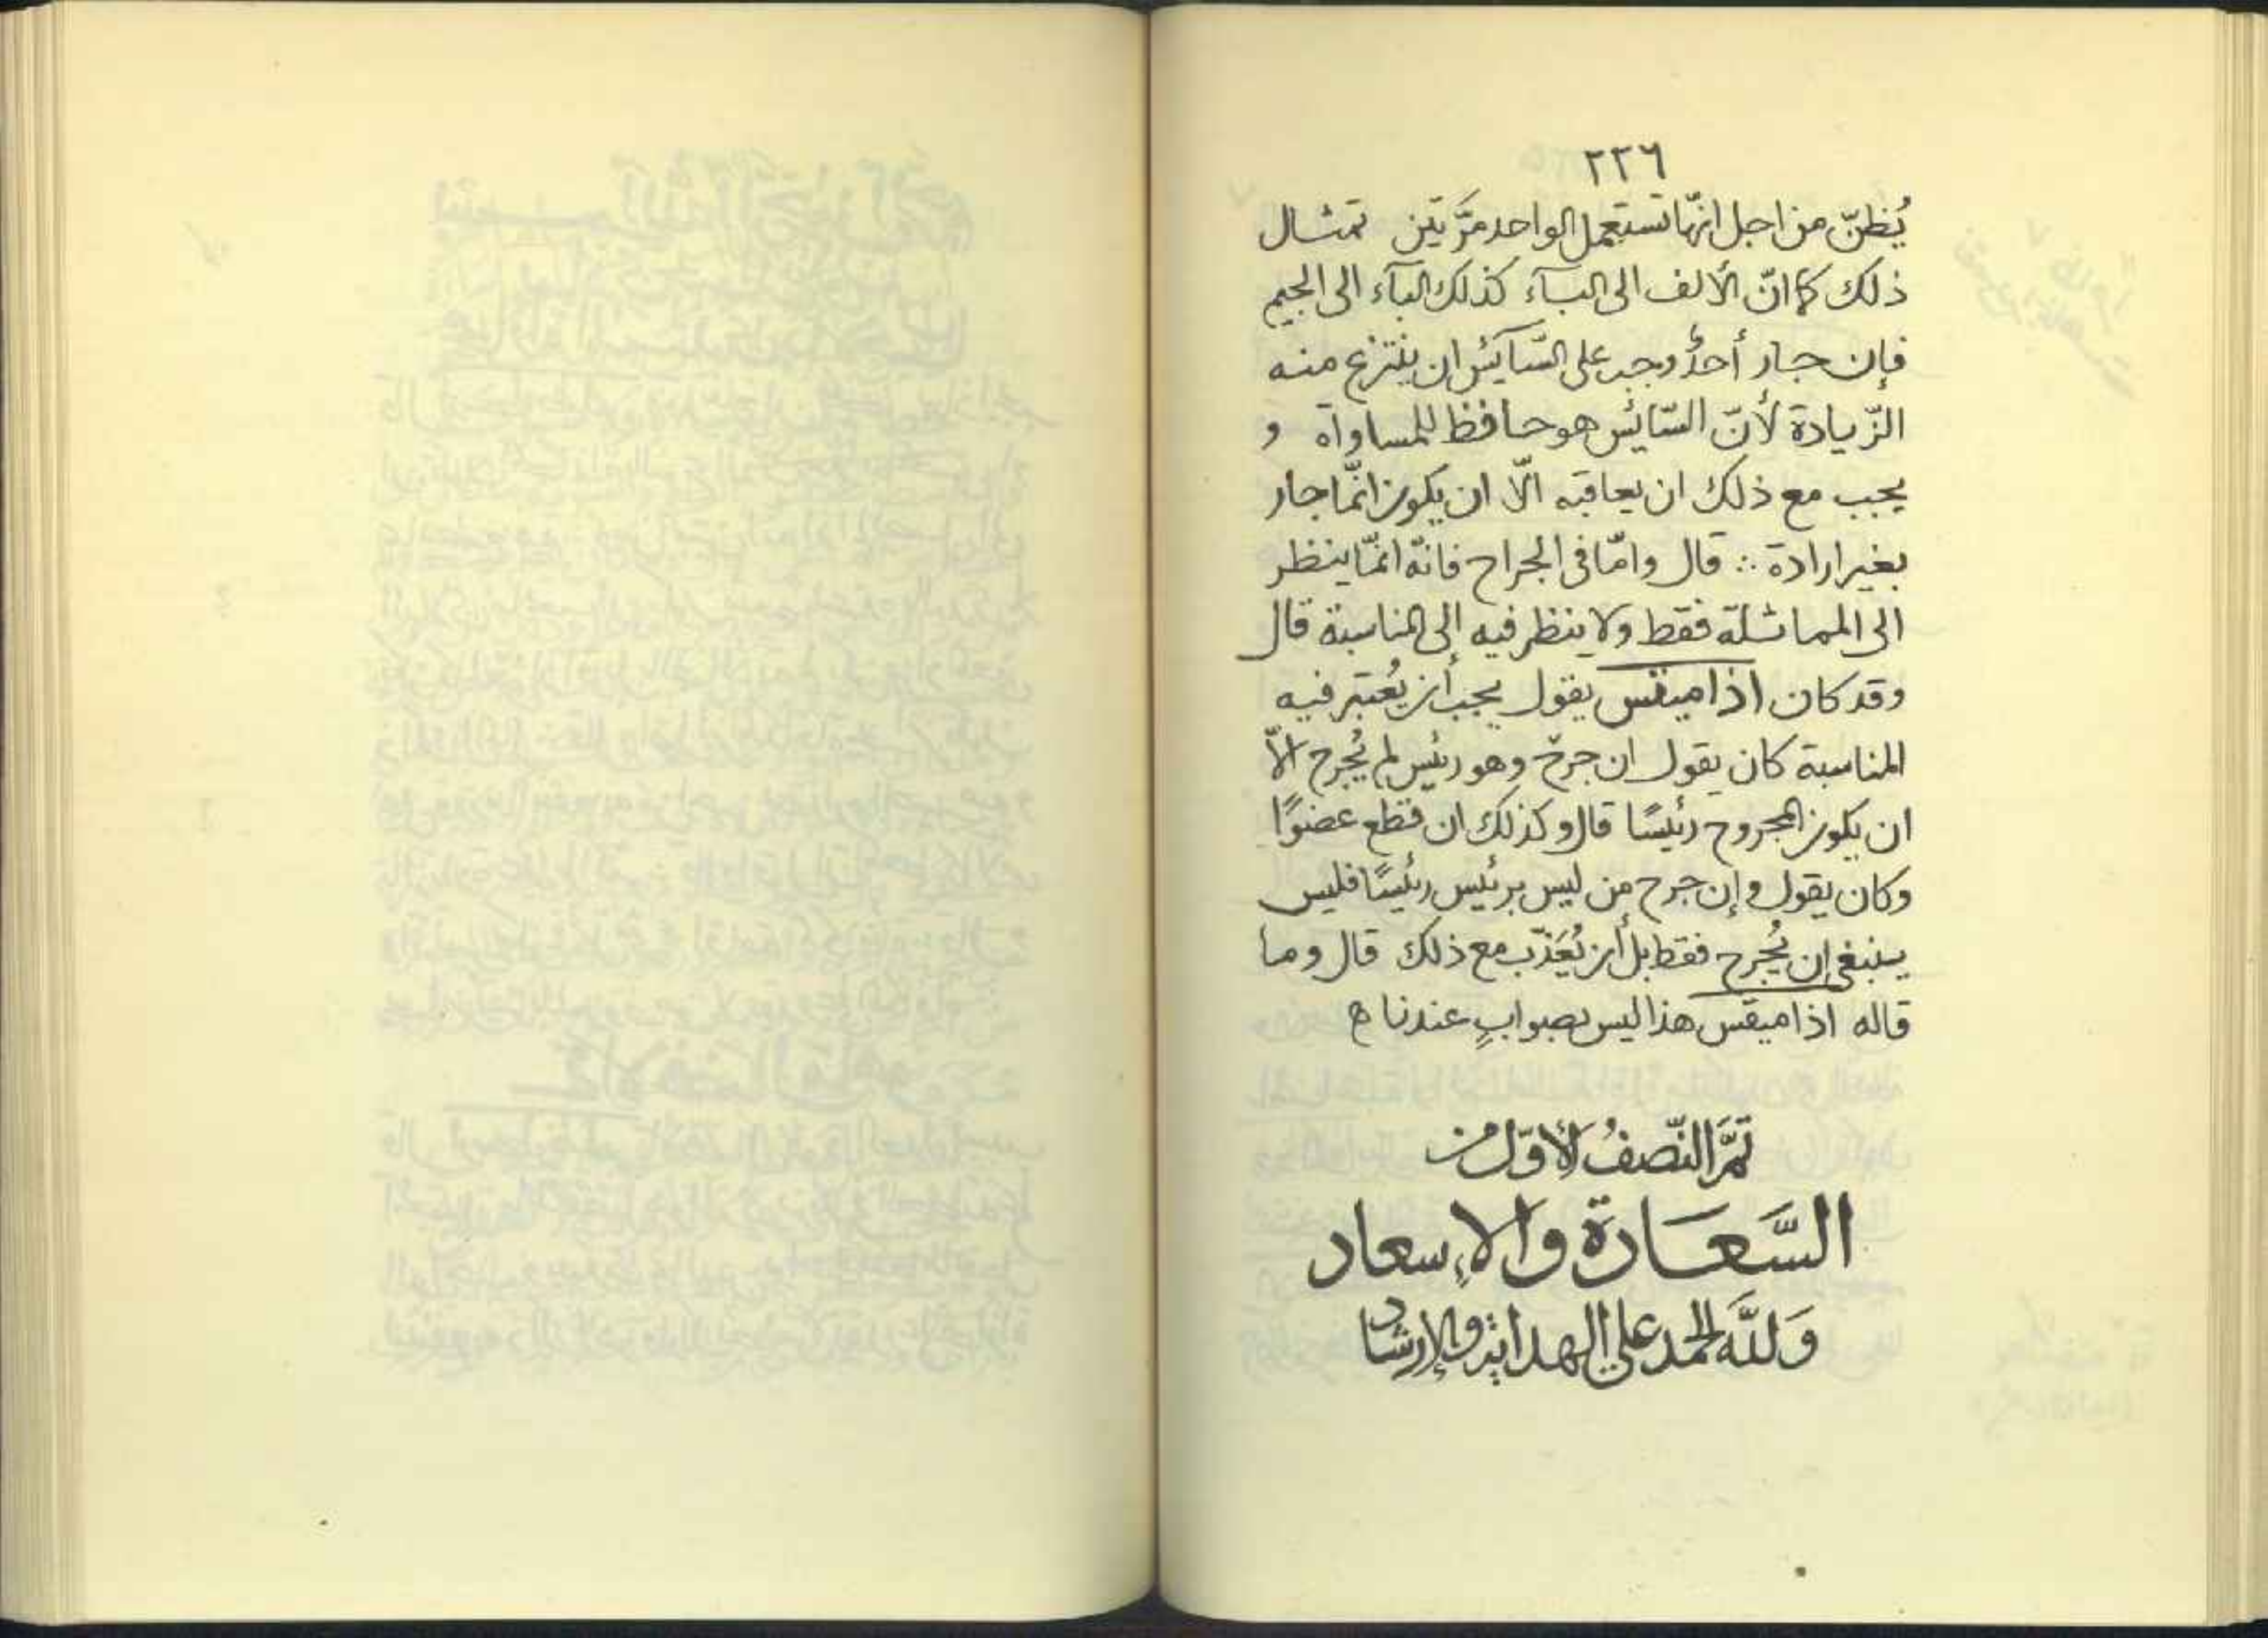 ٢٢٦
يُظنّ من اجل انّها تستعمل الواحد مرَّتين تمثال
ذلك كما انّ الألف الى الباء كذلك الباء الى الجيم
فإن جار أحدٌ وجب على السّآئس ان ينتزع منه
الزّيادة لأنّ السّائس هو حافظ للمساواة و
يجب مع ذلك ان يعاقبه الّا ان يكون انّما جار
بغير ارادة ∴ قال وامّا فى الجراح فانّه انّما ينظر
الى المماثلة فقط ولا ينظر فيه إلى المناسبة قال
وقد كان اذاميقس يقول يجب أن يُعتبر فيه
المناسبة كان يقول ان جرح وهو رئيس لم يُجرح الّا
ان يكون المجروح رئيسًا قال وكذلك ان قطع عضوًا
وكان يقول وإن جرح من ليس برئيس رئيسًا فليس
ينبغى إن يُجرح فقط بل أن يُعَذّب مع ذلك قال وما
قاله اذاميقس هذا ليس بصوابٍ عندنا ح
تمَّ النّصفُ الأوّل من
السَّعَادة والإسعاد
وَللَّه الحمد على الهداية والإرشاد